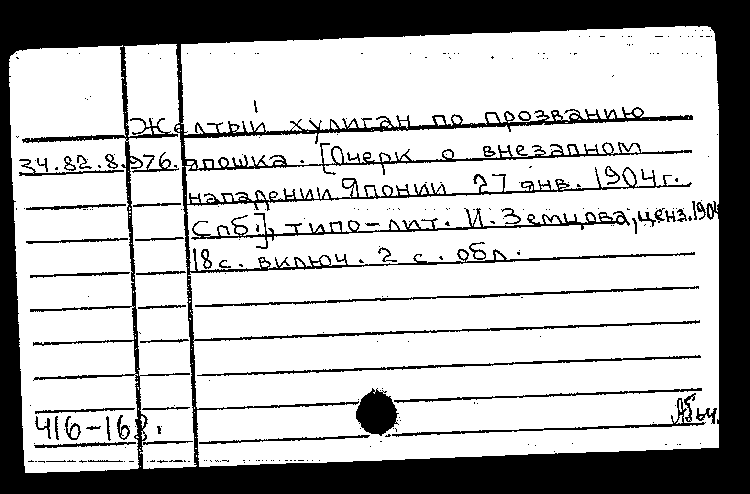 Желтый хулиган по прозванию
34.82.8.976. япошка. [Очерк о внезапном
нападении Японии 27 янв. 1904г.
Спб.], типо-лит. И. Земцова, ценз. 1904
18с. включ. 2 с. обл.
416-168.